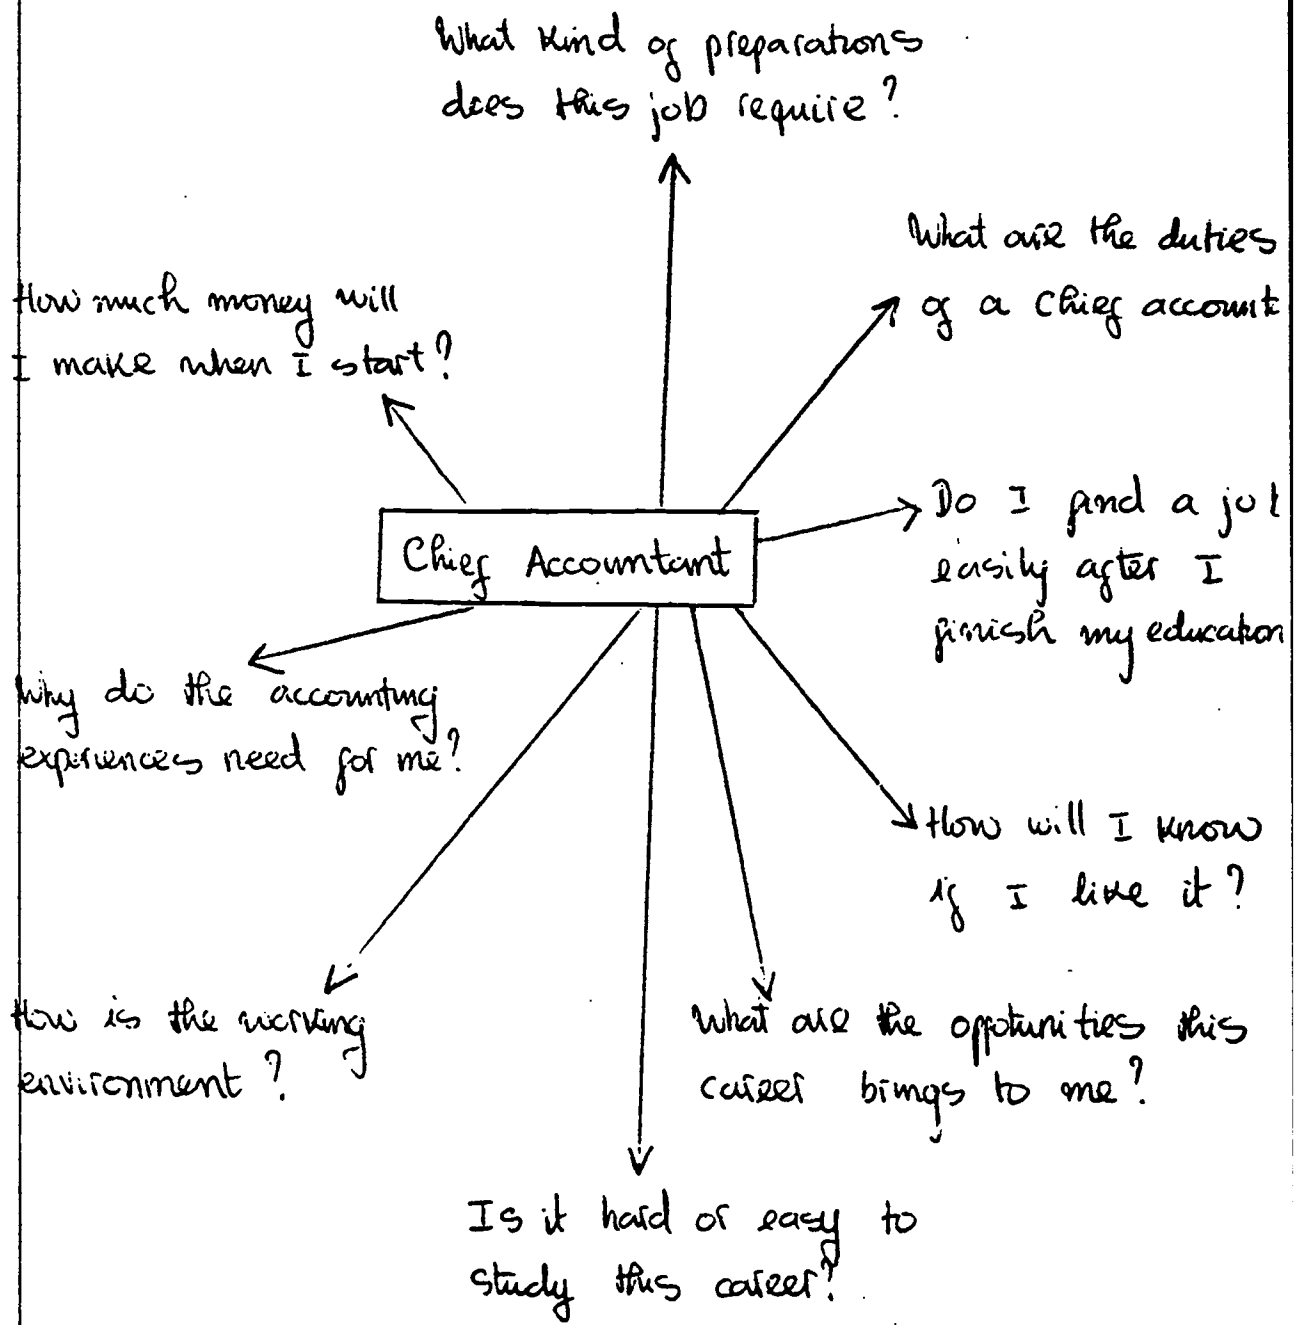 What kind of preparations
does this job require?
What are the duties
of a Chief account
How much money will
I make when I start?
Do I find a job
easily after I
finish my education
Chief Accountant
Why do the accounting
experiences need for me?
How will I know
if I like it?
How is the working
environment?
What are the oppotunities this
career brings to me?
Is it hard or easy to
study this career?